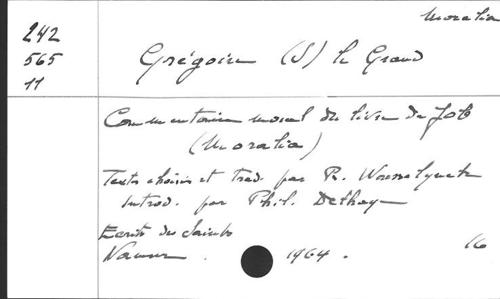 Moralia
242
565
11
Grégoire (S) le Grand
Commentaire moral du livre de Job
(Moralia)
Textes choisis et trad. par R. Wasselynck
Introd. par Phil. Delhaye
Ecrits des Saints
Namur . 1964 . 16